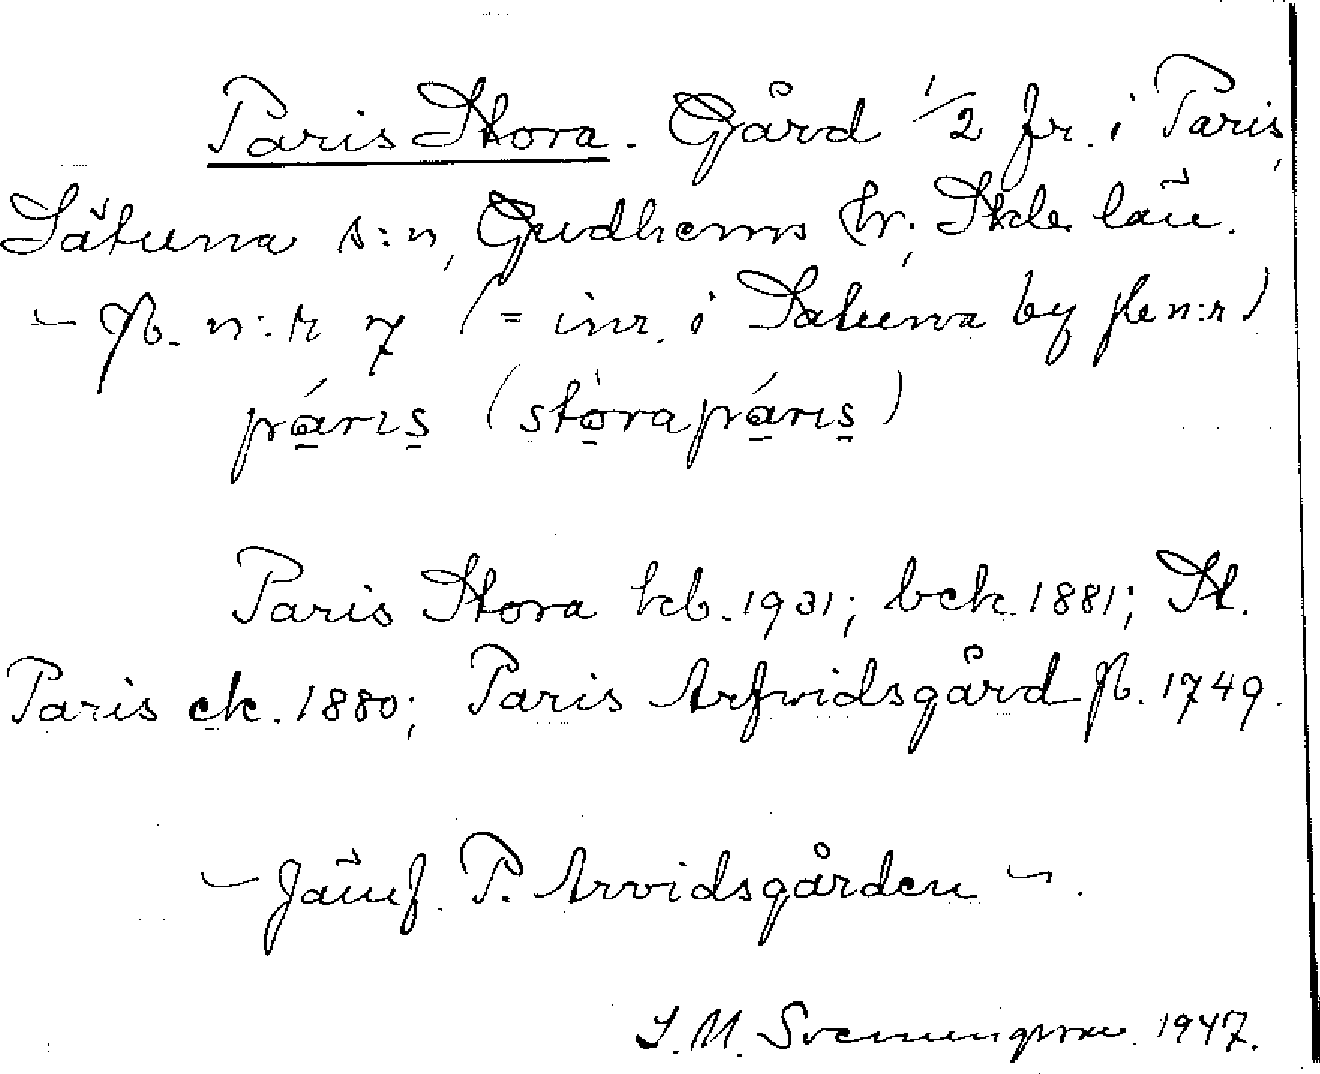 Paris Stora. Gård 1/2 fr. i Paris,
Sätuna s:n, Gudhems hr., Skbs län.
– jb. n:r 7 (= inr. i Sätuna by flen:r)
páris (stòrapáris)
Paris Stora kb. 1931; bek. 1881; St.
Paris ek. 1880; Paris Arfvidsgård jb. 1749.
– Jämf. P. Arvidsgården –.
S. M. Svenungsson. 1947.